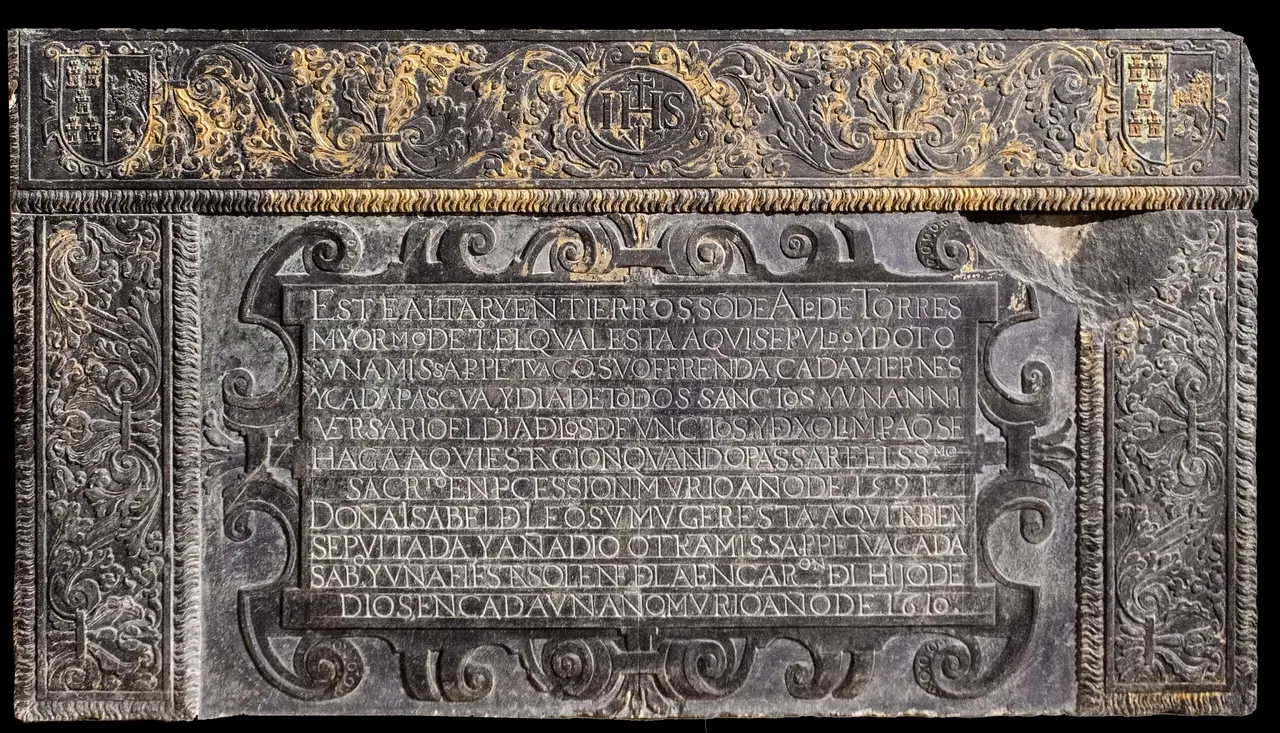 IHS
ESTE ALTAR Y ENTIERROS, SÕ DE ALº DE TORRES
MYORMº DE Tº EL QVAL ESTA AQVI SEPVLDO Y DOTO
VNA MISSA PPETVA CÕ SV OFFRENDA, CADA VIERNES
Y CADA PASCVA, Y DIA DE TODOS SANCTOS Y VN ANNI
VERSARIO EL DIA D LOS DEFVNCTOS, Y DXO LIMPA Q SE
HAGA AQVI ESTACION QVANDO PASSARE EL SSMO
SACRTO EN PCESSION MVRIO AÑO DE 1591.
DONA ISABEL D LEÕ SV MVGER ESTA AQVI TNBIEN
SEPVLTADA Y AÑADIO OTRA MISSA PPETVA CADA
SABº Y VNA FIESTA SOLENE D LA ENCARON DL HIJO DE
DIOS EN CADA VN AÑO MVRIO AÑO DE 1610.